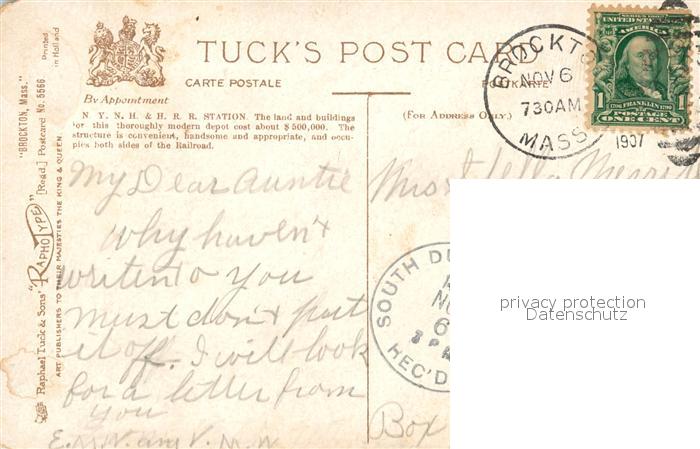 TUCK'S POST CARD
CARTE POSTALE
POSTKARTE
By Appointment
N. Y. N. H. & H. R. R. STATION. The land and buildings
for this thoroughly modern depot cost about $500,000. The
structure is convenient, handsome and appropriate, and occu-
pies both sides of the Railroad.
(For Address Only.)
"BROCKTON, Mass."
[Read.] Postcard No. 5666
Printed
in Holland
Raphael Tuck & Sons' "RAPHOTYPE"
ART PUBLISHERS TO THEIR MAJESTIES THE KING & QUEEN
BROCKTON
NOV 6
730AM
MASS.
1907
SERIES 1902
UNITED STATES OF
AMERICA
1706 FRANKLIN 1790
1 POSTAGE 1
ONE CENT
My Dear Auntie
why haven't
writen to you
must don't put
it off. I will look
for a letter from
you
Box
SOUTH DU
NO
6
REC'D
privacy protection
Datenschutz